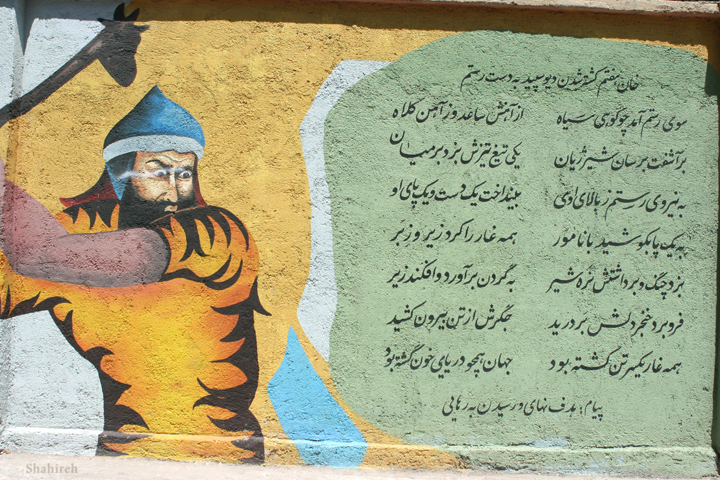 خان هفتم کشته شدن دیو سپید به دست رستم
سوی رستم آمد چو کوهی سیاه از آهنش ساعد وز آهن کلاه
برآشفت برسان شیر ژیان یکی تیغ تیزش بزد بر میان
به نیروی رستم ز بالای اوی بینداخت یک دست و یک پای او
به یک پا بکوشید با نامور همه غار را کرد زیر و زبر
بزد چنگ و برداشتش نره شیر به گردن برآورد و افکند زیر
فرو برد خنجر دلش بر درید جگرش از تن بیرون کشید
همه غار یکسر تن کشته بود جهان همچو دریای خون گشته بود
پیام: هدف نهایی و رسیدن به رهایی
Shahireh